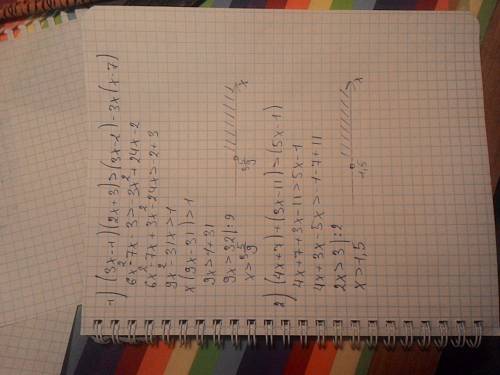 1) (3x-1)(2x+3)>(3x-2)-3x(x-7)
6x²-7x+3>-3x²+24x-2
6x²-7x+3x²-24x>-2+3
9x²-31x>1
x(9x-31)>1
9x>1+31
9x>32|:9
x>3 5/9
3 5/9
x
2) (4x+7)+(3x-11)>(5x-1)
4x+7+3x-11>5x-1
4x+3x-5x>-1-7+11
2x>3|:2
x>1,5
1,5
x